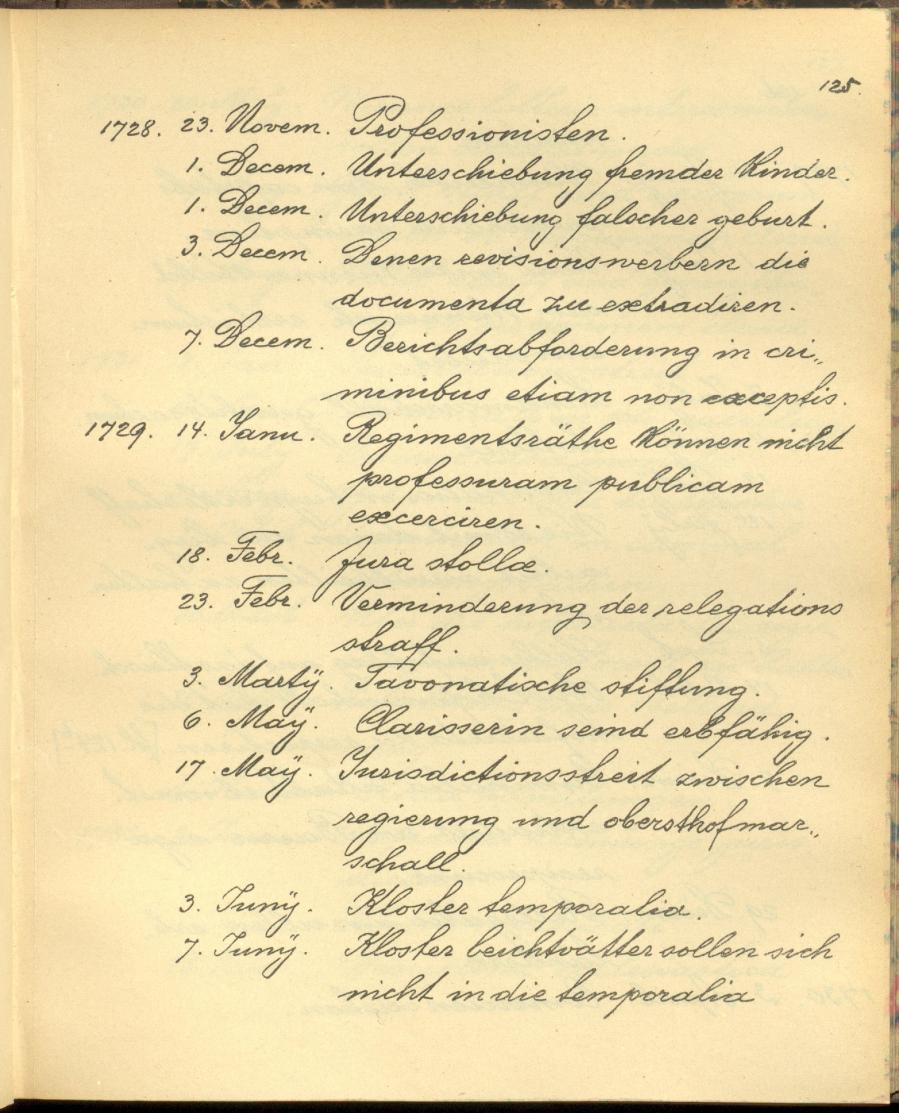 125.
1728. 23. Novem. Professionisten.
1. Decem. Unterschiebung fremder Kinder.
1. Decem. Unterschiebung falscher geburt.
3. Decem. Denen revisionswerbern die
documenta zu extradiren.
7. Decem. Berichtsabforderung in cri„
minibus etiam non exceptis.
1729. 14. Janu. Regimentsräthe können nicht
professuram publicam
excerciren.
18. Febr. Jura stollæ.
23. Febr. Verminderung der relegations
straff.
3. Martÿ. Tavonatische stiftung.
6. Maÿ. Clarisserin seind erbfähig.
17. Maÿ. Jurisdictionsstreit zwischen
regierung und obersthofmar„
schall.
3. Junÿ. Kloster temporalia.
7. Junÿ. Kloster beichtvätter sollen sich
nicht in die temporalia